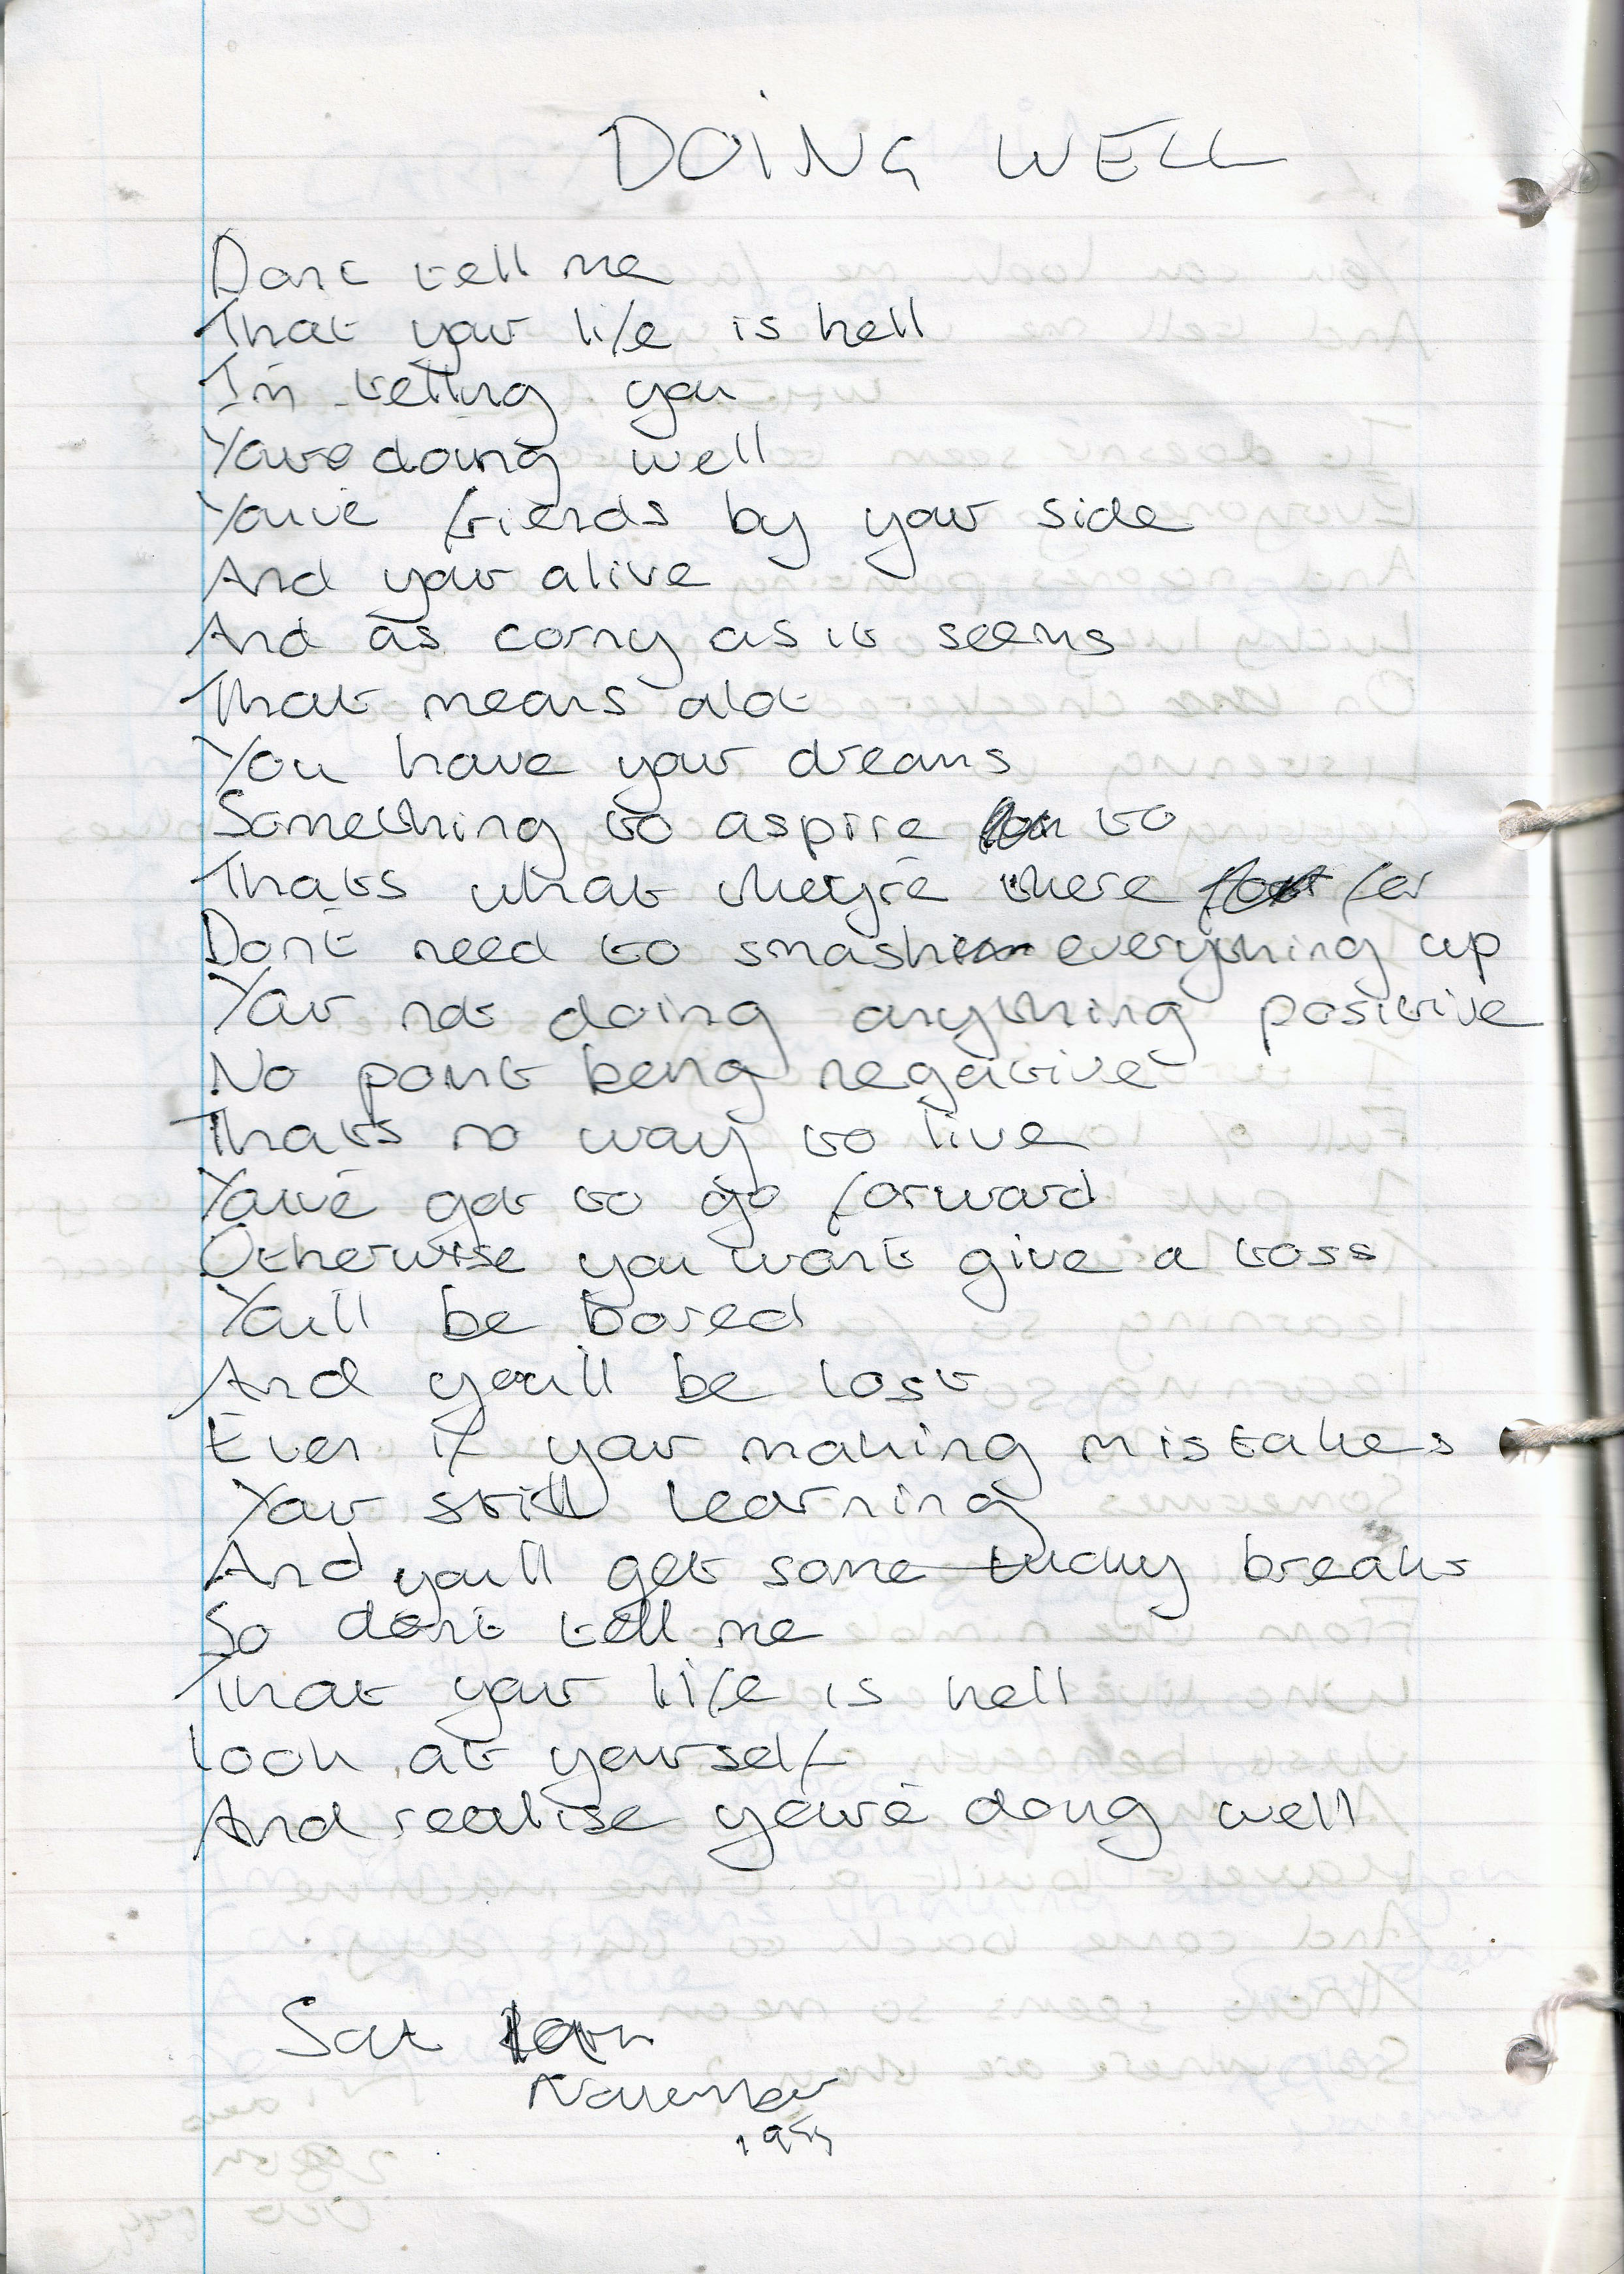 DOING WELL
Dont tell me
That your life is hell
I'm telling you
Youre doing well
You've friends by your side
And your alive
And as corny as it seems
That means alot
You have your dreams
Something to aspire to
Thats what they're there for
Dont need to smash everything up
Your not doing anything positive
No point being negative
Thats no way to live
You've got to go forward
Otherwise you wont give a toss
Youll be bored
And youll be lost
Even if your making mistakes
Your still learning
And youll get some lucky breaks
So dont tell me
That your life is hell
Look at yourself
And realise you're doing well
Sat
November